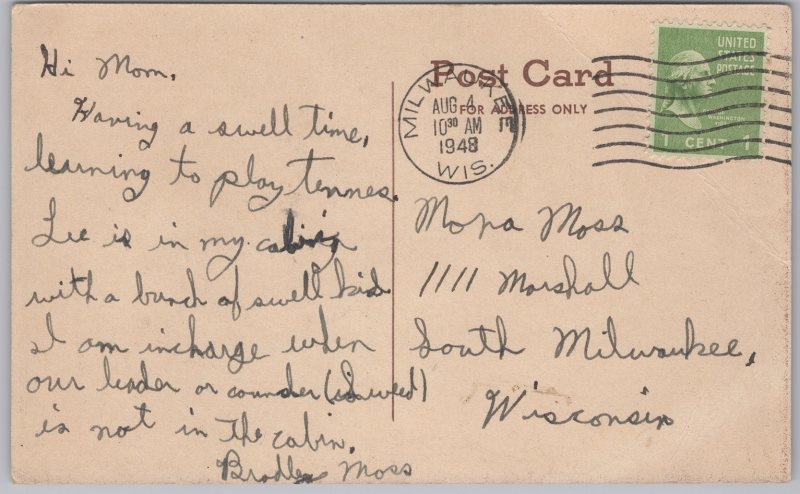 Hi Mom,
Having a swell time,
learning to play tennes.
Lee is in my cabin,
with a bunch of swell kids.
I am incharge when
our leader or counsler (
is not in the cabin.
Bradley Moss
Post Card
FOR ADDRESS ONLY
MILWAUKEE
AUG 4
10 30 AM
1948
WIS.
UNITED
STATES
POSTAGE
WASHINGTON
1 CENT 1
Mona Moss
1111 Marshall
South Milwaukee,
Wisconsin